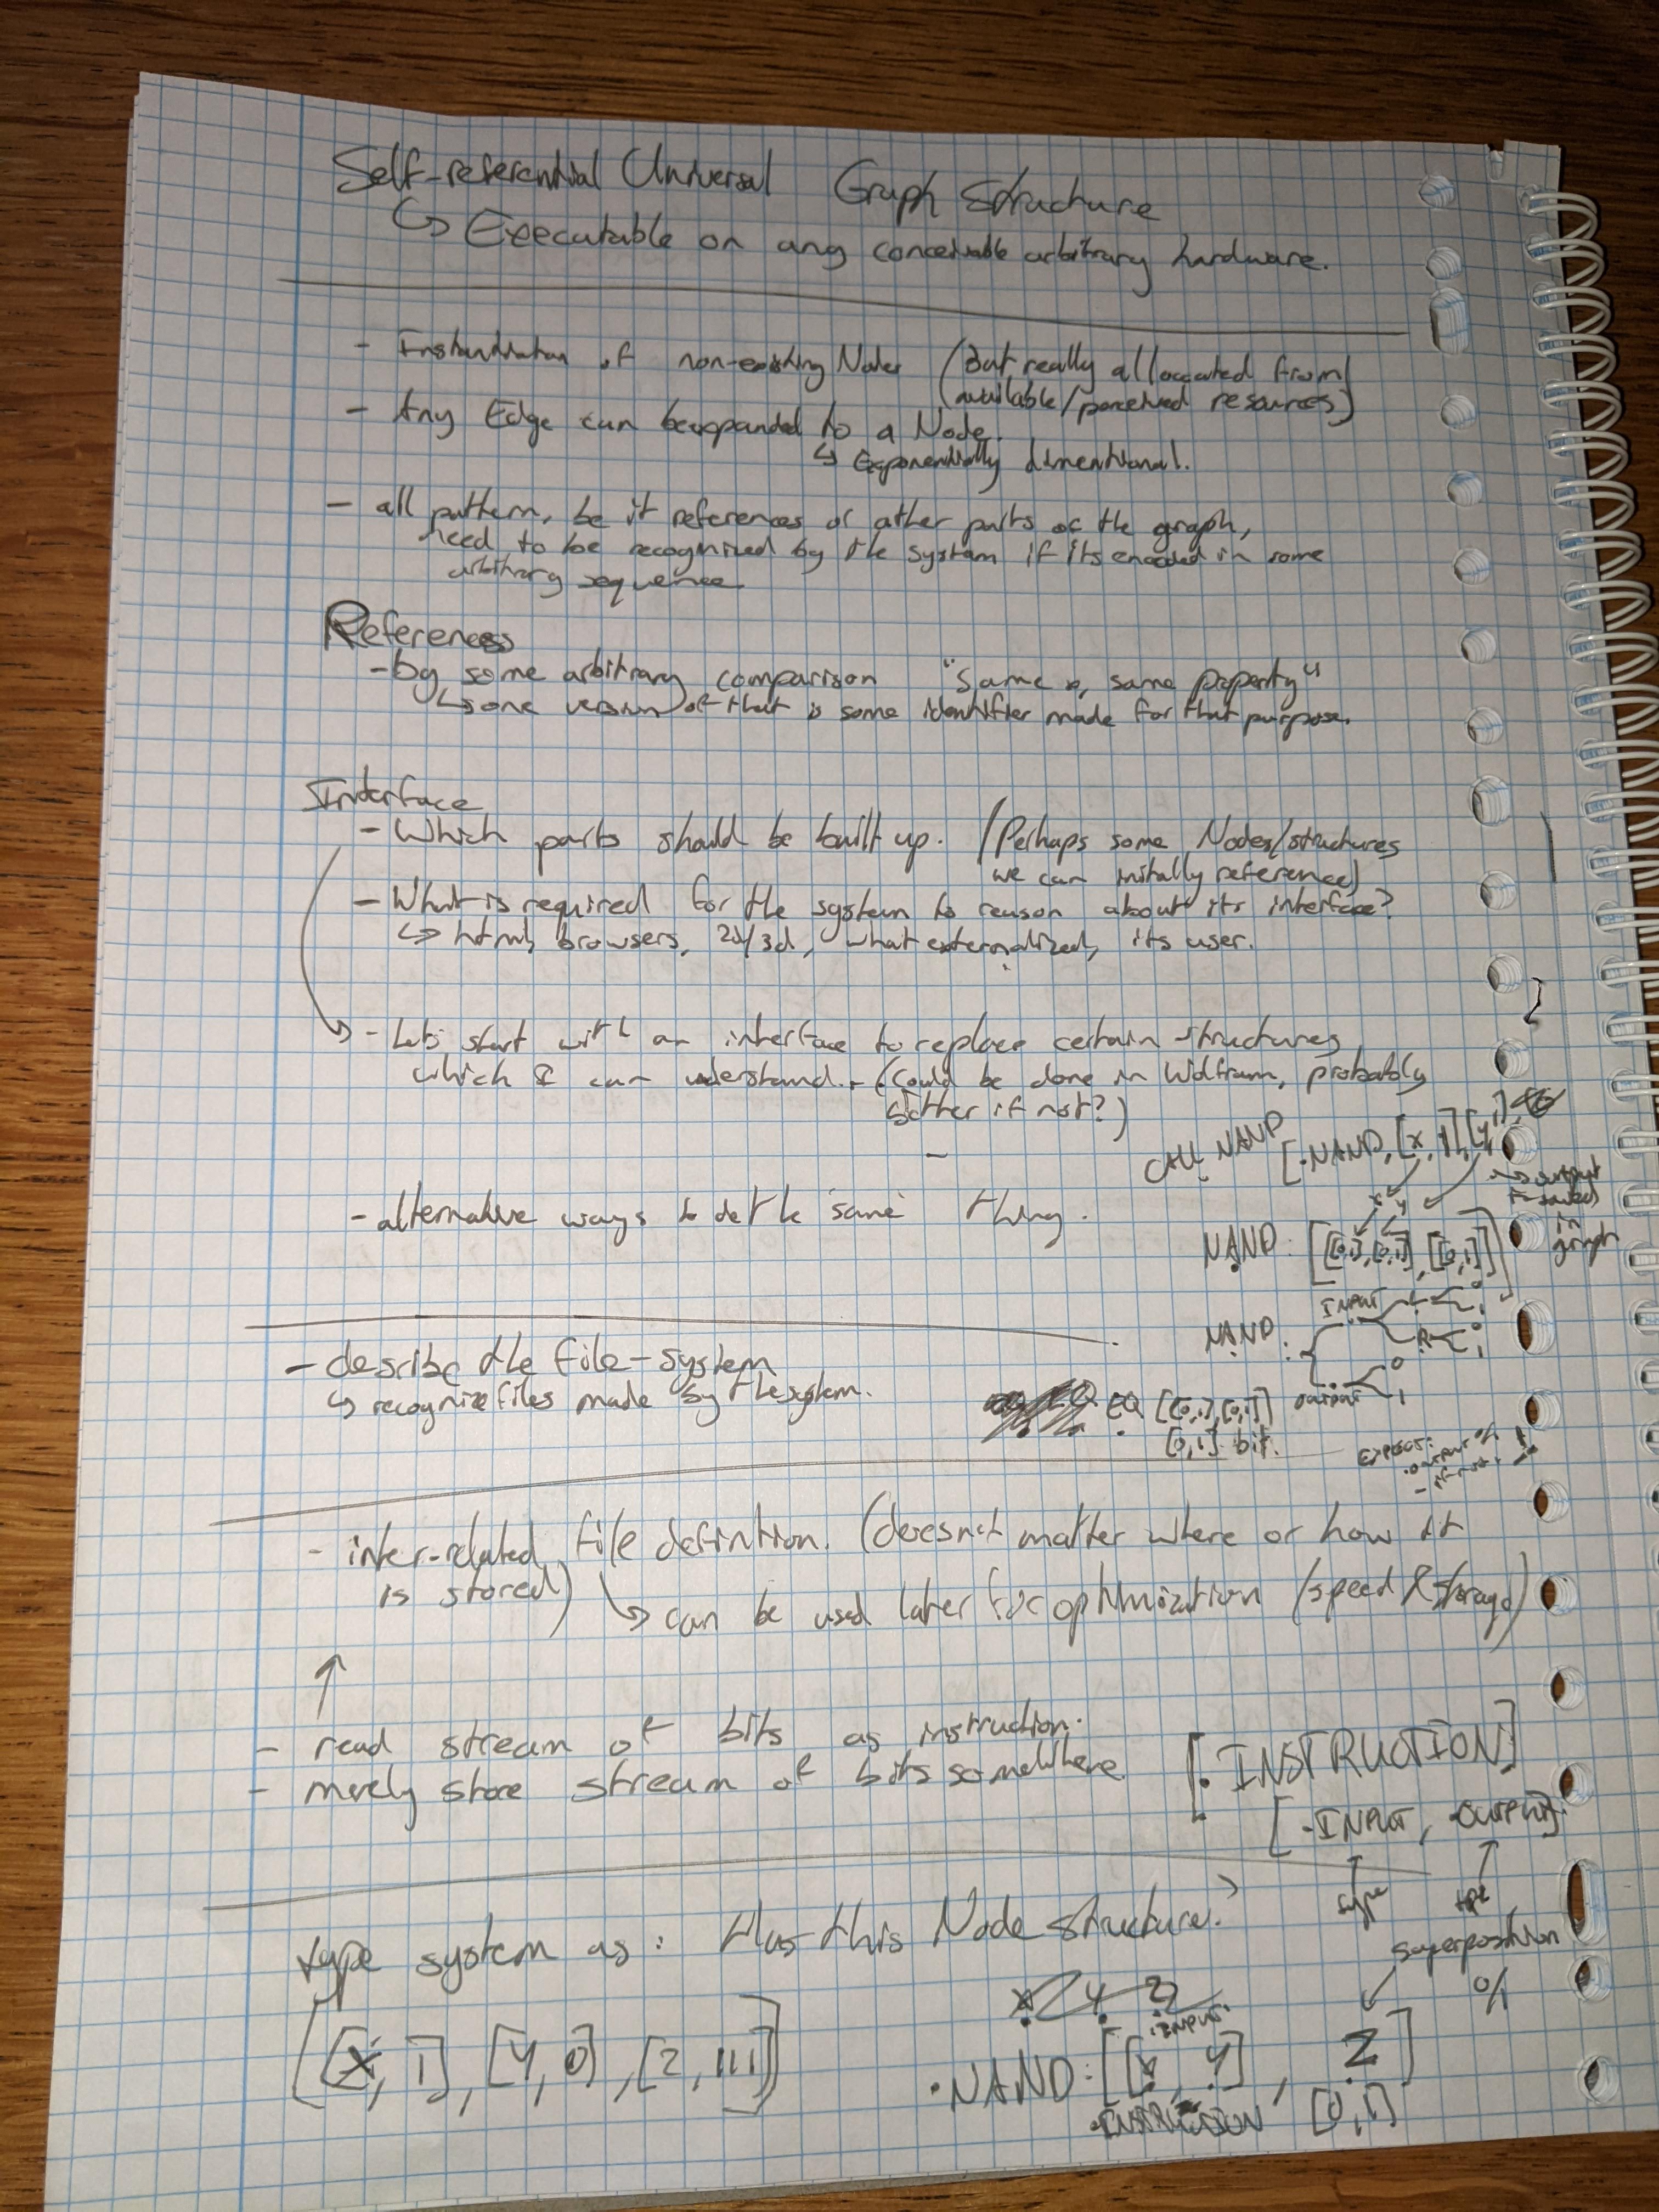 Self-referential Universal Graph Structure
↳ Executable on any conceivable arbitrary hardware.
- Instantiation of non-existing Nodes (But really allocated from
available/perceived resources)
- Any Edge can be expanded to a Node.
↳ Exponentially dimentional.
- all pattern, be it references or other parts of the graph,
need to be recognized by the system if its encoded in some
arbitrary sequence.
References
- by some arbitrary comparison "Same as, same property"
↳ one version of that is some identifier made for that purpose.
Interface
- Which parts should be built up. (Perhaps some Nodes/structures
we can initally reference)
- What is required for the system to reason about its interface?
↳ html, browsers, 2d/3d, what externalized, its user.
- Lets start with an interface to replace certain structures
which I can understand. - (Could be done in Wolfram, probably
better if not?)
-
CALL NAND [.NAND, [x, 1], [y, 1],
→ output
saved
in
graph
x y
- alternative ways to def the same thing.
NAND: [[[0,1],[0,1]], [[0,1]]]
NAND: INPUT L 0 1
R 0 1
OUTPUT 0 1
- describe the file-system
↳ recognize files made by the system.
EQ [[0,1],[0,1]]
[0,1] bit.
- inter-related file defintion. (doesn't matter where or how it
is stored) ↳ can be used later for optimization (speed & storage)
- read stream of bits as instruction.
- merely store stream of bits somewhere.
[. INSTRUCTION]
[.INPUT, .OUTPUT].
type type
superposition
0/1
type system as: Has this Node structure?
[[X, 1], [Y, 0], [Z, 111]]
X Y Z
.INPUT.
.NAND: [[X, Y], Z]
.INSTRUCTION [0,1]